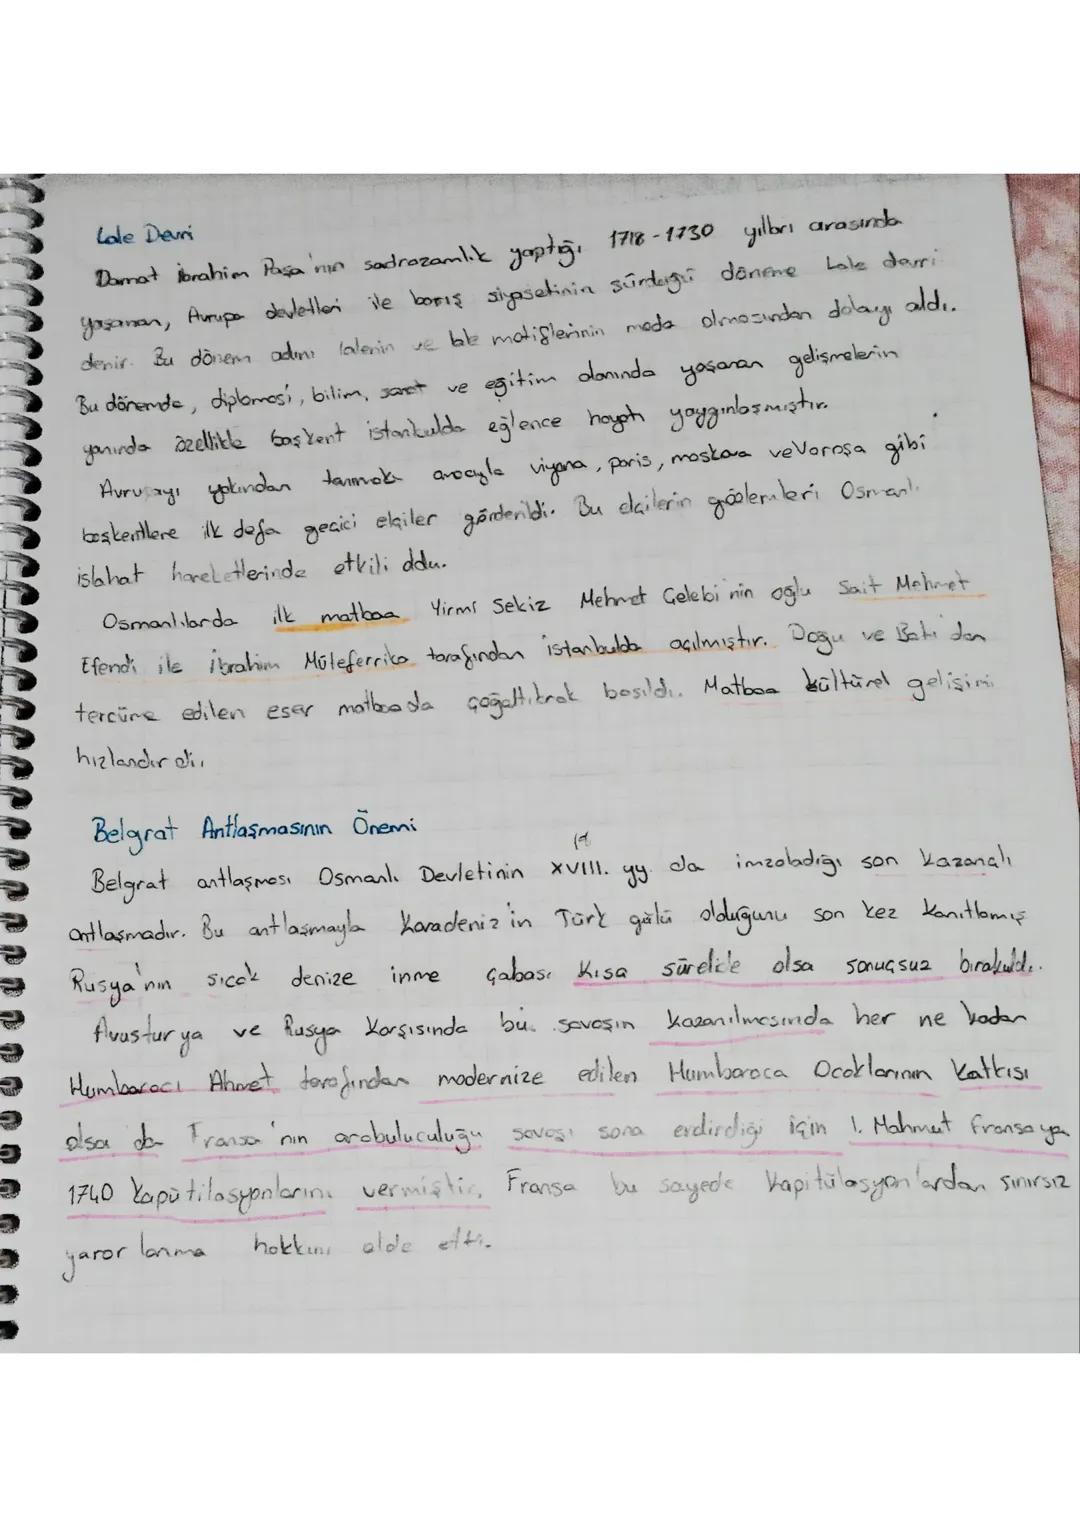 Lale Devri
Damat İbrahim Paşa'nın sadrazamlık yaptığı 1718-1730 yılları arasında
yaşanan, Avrupa devletleri ile barış siyasetinin sürdüğü döneme Lale devri
denir. Bu dönem adını lalenin ve lale motiflerinin moda olmasından dolayı aldı.
Bu dönemde, diplomasi, bilim, sanat ve eğitim alanında yaşanan gelişmelerin
yanında özellikle başkent istanbulda eğlence hayatı yaygınlaşmıştır.
Avrupayı yakından tanımak amacıyla viyana, paris, moskova ve Varoşa gibi
başkentlere ilk defa geçici elçiler gönderildi. Bu elçilerin gözlemleri Osmanlı
ıslahat hareketlerinde etkili oldu.
Osmanlılarda ilk matbaa Yirmi Sekiz Mehmet Çelebi'nin oğlu Sait Mehmet
Efendi ile İbrahim Müteferrika tarafından istanbulda açılmıştır. Doğu ve Batı'dan
tercüme edilen eser matbaada çoğaltılarak basıldı. Matbaa kültürel gelişimi
hızlandırdı.
Belgrat Antlaşmasının Önemi
18
Belgrat antlaşması Osmanlı Devletinin XVIII. yy. da imzaladığı son kazançlı
antlaşmadır. Bu antlaşmayla Karadeniz'in Türk gölü olduğunu son kez kanıtlamış
Rusya'nın sıcak denize inme çabası kısa sürelide olsa sonuçsuz bırakıldı.
Avusturya ve Rusya karşısında bu savaşın kazanılmasında her ne kadar
Humbaracı Ahmet tarafından modernize edilen Humbaraca Ocaklarının katkısı
olsa da Fransa'nın arabuluculuğu savaşı sona erdirdiği için 1. Mahmut fransaya
1740 kapütilasyonlarını vermiştir, Fransa bu sayede kapitülasyonlardan sınırsız
yararlanma hakkını elde etti.